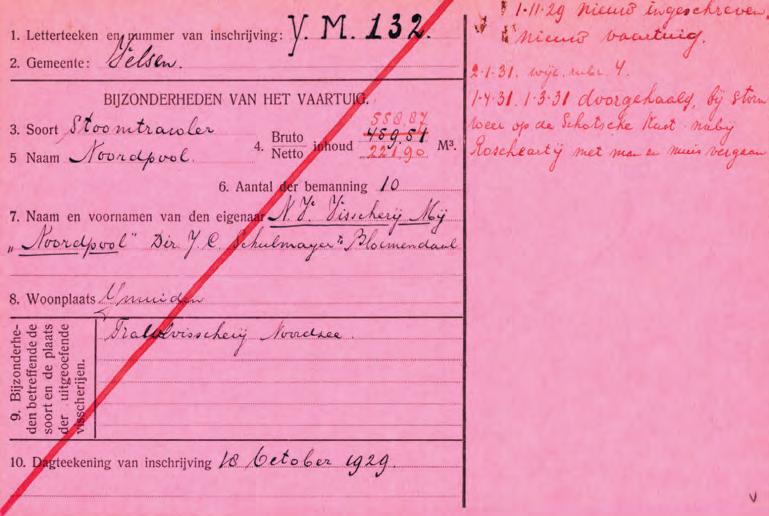 1. Letterteeken en nummer van inschrijving: Y. M. 132.
2. Gemeente: Velsen.
BIJZONDERHEDEN VAN HET VAARTUIG.
3. Soort Stoomtrawler
558,87
4. Bruto Netto inhoud 459,51 M³.
221,90
5 Naam Noordpool.
6. Aantal der bemanning 10
7. Naam en voornamen van den eigenaar N. V. Visscherij Mij
„Noordpool" Dir. J. C. Schulmayer Bloemendaal
8. Woonplaats Ymuiden
9. Bijzonderhe-
den betreffende de
soort en de plaats
der uitgeoefende
visscherijen.
Trawlvisscherij Noordzee.
10. Dagteekening van inschrijving 18 October 1929.
1-11-29 nieuw ingeschreven,
nieuw vaartuig.
2-1-31. wijz. rubr. 4.
1-4-31. 1-3-31 doorgehaald, bij storm
weer op de Schotsche Kust nabij
met man en muis vergaan